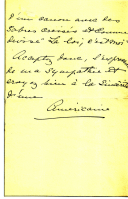 d'un canon avec les
sabres croisés et comme
devise "La loi, c'est moi
Acceptez donc, l'expres
de ma sympathie et
croyez bien à la sincérité
d'une
Américaine